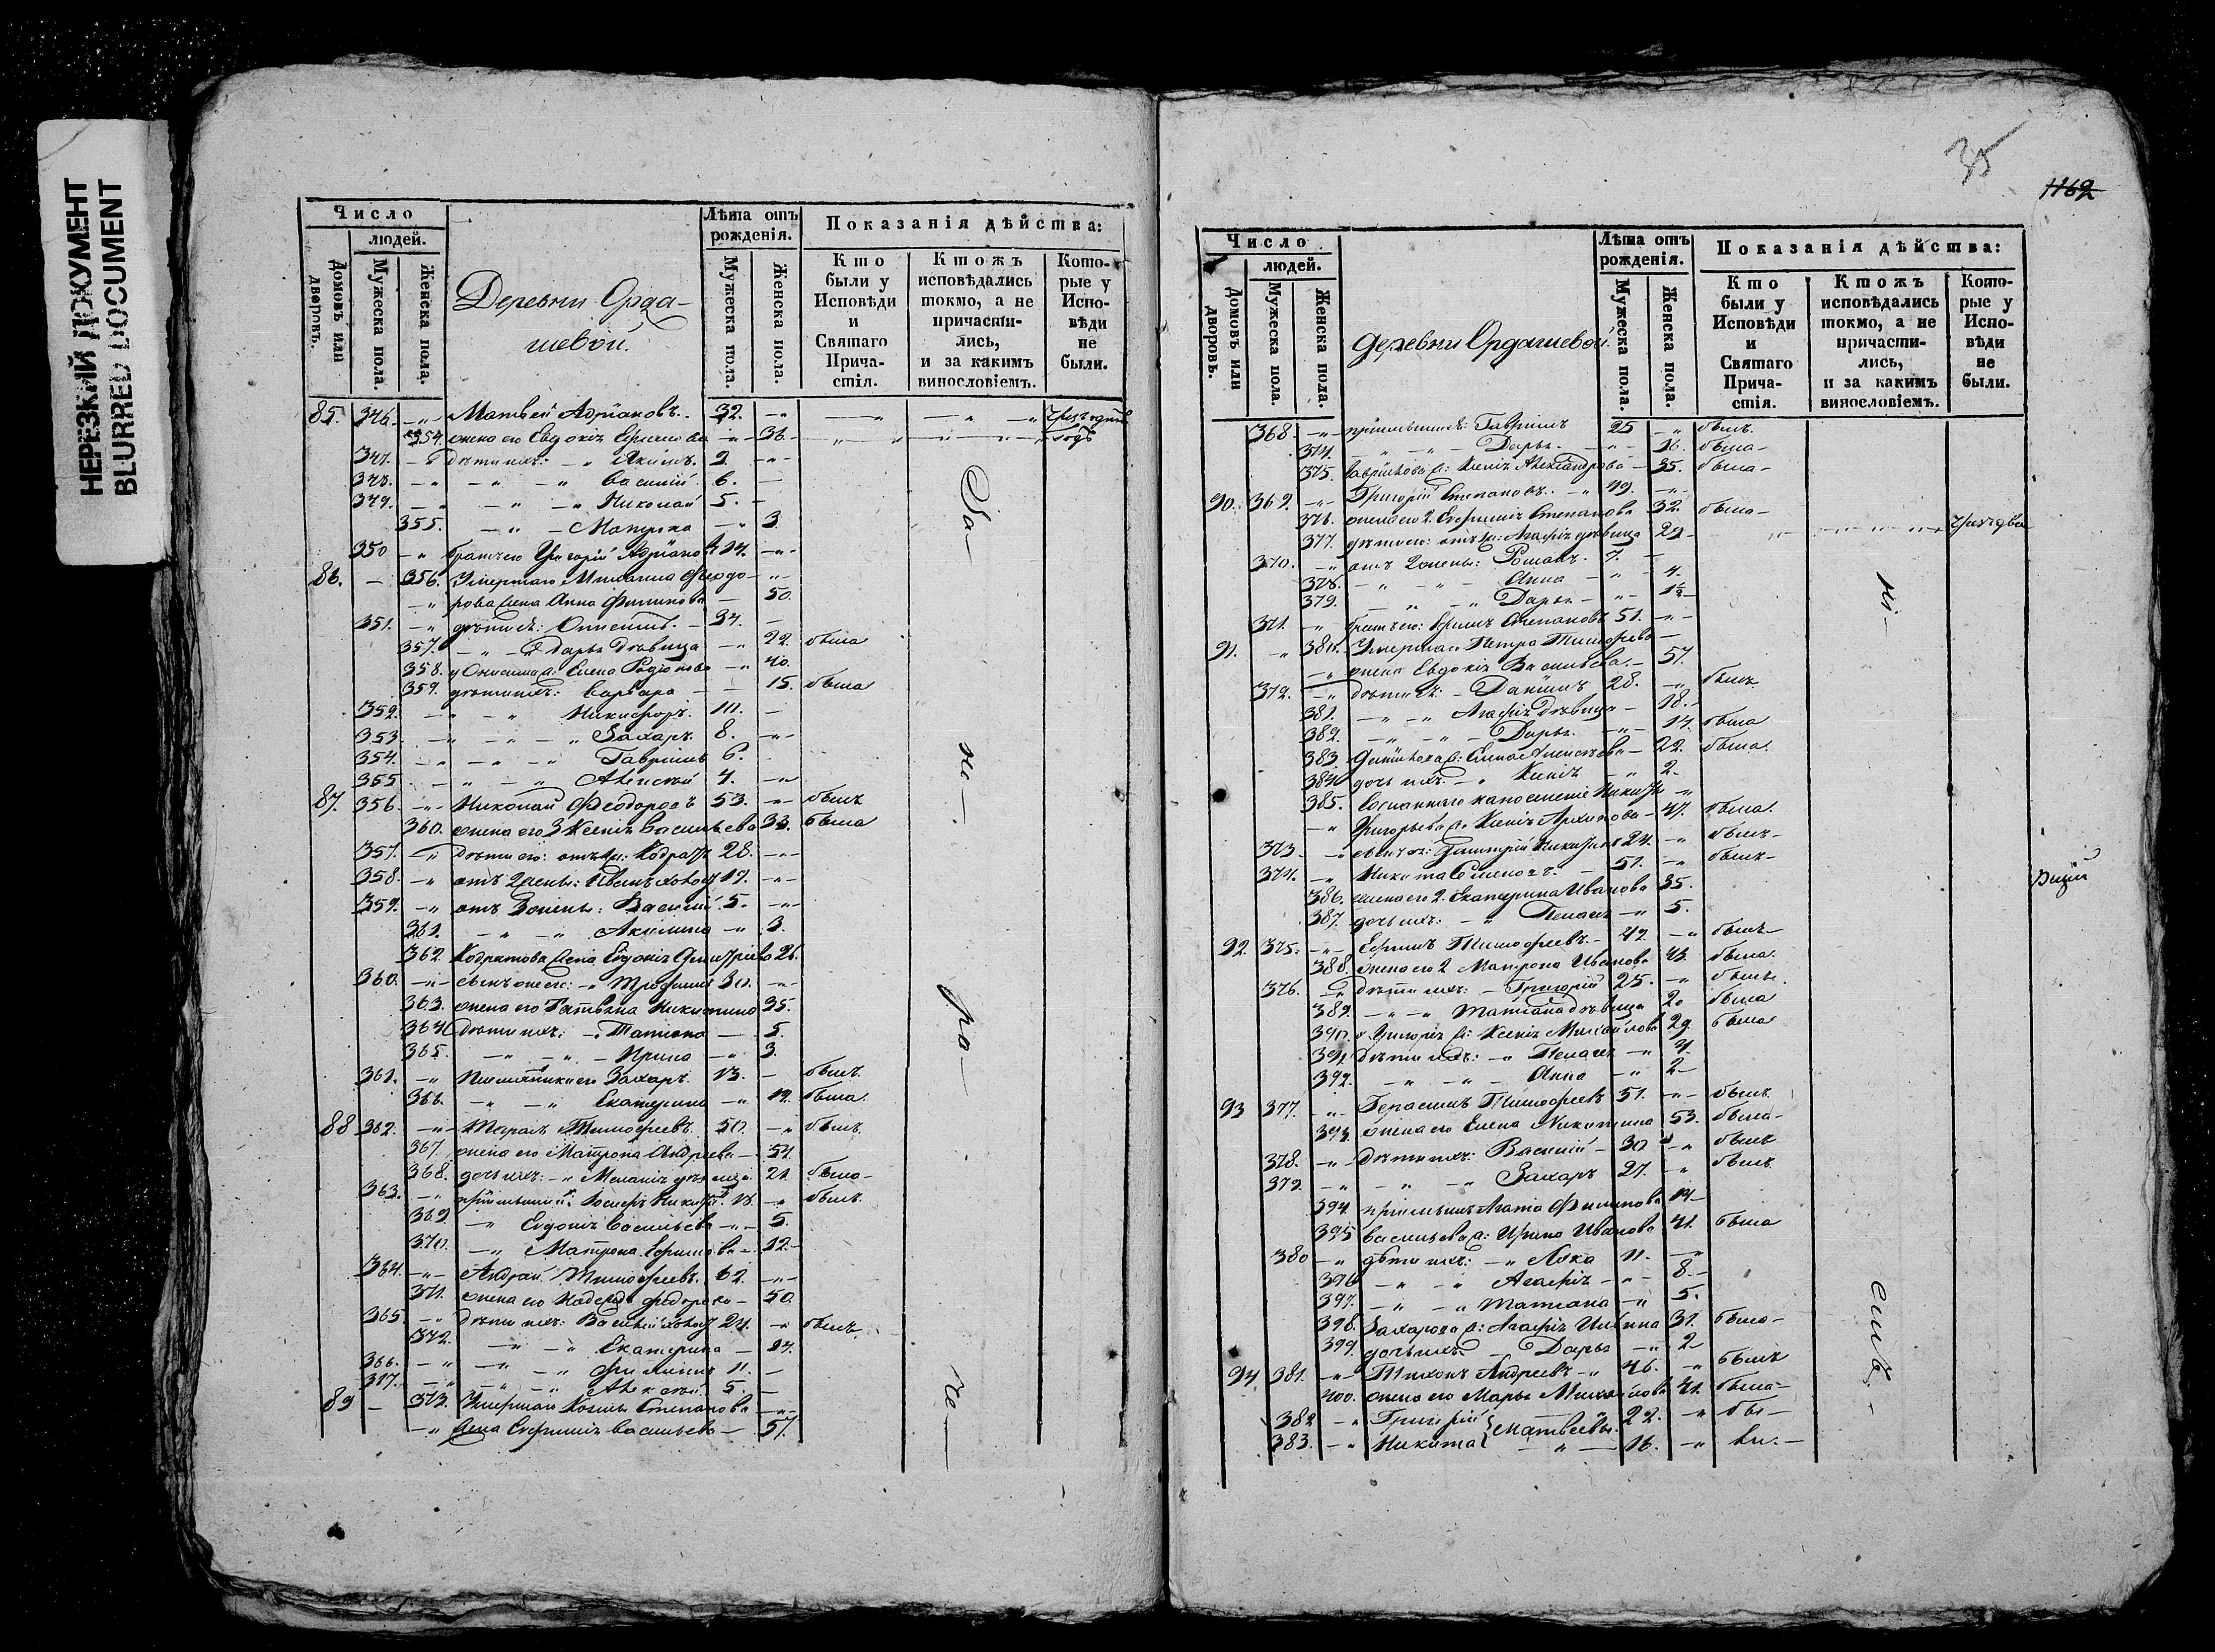 НЕРЕЗКИЙ ДОКУМЕНТ
BLURRED DOCUMENT
Число
людей.
Домовъ или дворовъ.
Мужеска пола.
Женска пола.
Деревни Орда-
шевой.
Лѣта отъ рожденія.
Мужеска пола.
Женска пола.
Показанія дѣйства:
Кто были у Исповѣди и Святаго Причастія.
Ктожъ исповѣдались токмо, а не причастились, и за какимъ винословіемъ.
Которые у Исповѣди не были.
85. 346. Матвей Адріановъ. 32.
354. жена его Евдокія Ефимова 36. годъ
347. дѣти ихъ: Якимъ. 9.
348. Василій 6.
349. Николай 5.
355. Матрона 3.
350 братъ его Григорій Адріановъ
86. 356. Умершаго Михаила Ѳеодо-
рова жена Анна Филипова 50.
351. дѣти ея: Онисимъ. 34.
357. Дарья дѣвица 22. была
358. у Онисима ж: Елена Родіонова 40.
359. дѣти ихъ: Варвара 15. была
352. Никифоръ.
353. Захаръ. 8.
354. Гавріилъ 6.
355 Алексѣй 4.
87. 356. Николай Ѳеодоровъ 53. былъ
360. жена его 3 Ксенія Васильева 33. была
357. дѣти его: 28.
358. отъ 2 жены: Иванъ холостъ 19.
359. отъ 3 жены: Василій. 5.
361. Акилина 3.
362. Кодратова жена Евдокія Дмитріева 26.
360. Трофимъ 30.
363. жена его Татьяна Никитина 35.
364 дѣти ихъ: Татіана 5.
365. Ирина 3.
361. племянники его Захаръ. 13. былъ
366. Екатерина 19. была
88 362. Тарасъ Тимофеевъ. 50. былъ
367 жена его Матрона Андреева 54.
368. дочь ихъ: Меланія дѣвица 21. была
363. пріимыши: 18. былъ
369 Евдокія Васильева 5.
370. Матрона Ефимова 12.
364. Андрей Тимофеевъ. 62.
371. жена его Федорова 50.
365 дѣти ихъ: Василій холостъ 24. былъ
372. Екатерина 24.
366. Филипъ 11.
Алексѣй. 5.
89 373. Умершаго Козьмы Степанова
жена Евфимія Васильева 57.
За-
не-
ра-
че-
35
1162
Число
людей.
Домовъ или дворовъ.
Мужеска пола.
Женска пола.
деревни Ордашевой.
Лѣта отъ рожденія.
Мужеска пола.
Женска пола.
Показанія дѣйства:
Кто были у Исповѣди и Святаго Причастія.
Ктожъ исповѣдались токмо, а не причастились, и за какимъ винословіемъ.
Которые у Исповѣди не были.
368. пріимыши: Гавріилъ 25 былъ
374. Дарья 16. была
375. Гаврилова ж: Ксенія Александрова 35. была
90. 369. Григорій Степановъ. 49.
376. жена его 2. Евфимія Степанова 32. была
377. дѣти его: Агафія дѣвица 29
370. отъ 2 жены: Романъ. 7.
378. Анна 4.
379. Дарья
371 братъ его: Степановъ 51.
91. 380. Умершаго Петра Тимофеева
жена Евдокія Васильева. 57.
372. дѣти ея: Даніилъ 28. былъ
381. Агафія дѣвица 18.
382. Дарья 14. была
383. Данілова ж: 22. была
384 дочь ихъ. Ксенія 2.
385. Сосланнаго на поселеніе Никиты
Григорьева ж. Ксенія Архипова 47. была
373 сынъ ея: Димитрій Никитинъ 24. былъ
374. Никита Семеновъ. 51. былъ
386. жена его 2. Екатерина Иванова 35.
387. дочь ихъ: Пелагея 5.
92. 375. Ефимъ Тимофеевъ. 42. былъ
388. жена его 2 Матрона Иванова 43. была
376. дѣти ихъ: Григорій 25. былъ
389. Матіана дѣвица 20 была
390. у Григорія ж: Ксенія Михайлова 29. была
391 дѣти ихъ: Пелагея
392. Анна 2
93 377. Герасимъ Тимофеевъ 51. былъ
393. жена его Елена Никитина 53. была
378. дѣти ихъ: Василій 30 былъ
379. Захаръ 27. былъ
394. пріимышъ Агата Филипова 14
395 Васильева ж: Ирина Иванова 41. была
380 дѣти ихъ: Лука 11.
396 Агафія 8.
397. Татіана 5.
398. Захарова ж: Агафія Ильина 31. была
399. дочь ихъ Дарья 2
94 381. Тихонъ Андреевъ 46. былъ
400. жена его Марья Михайлова 41. была
382 Григорій 22. бы-
383. Никита Матвеевы. 16. ли.
ні-
емъ.